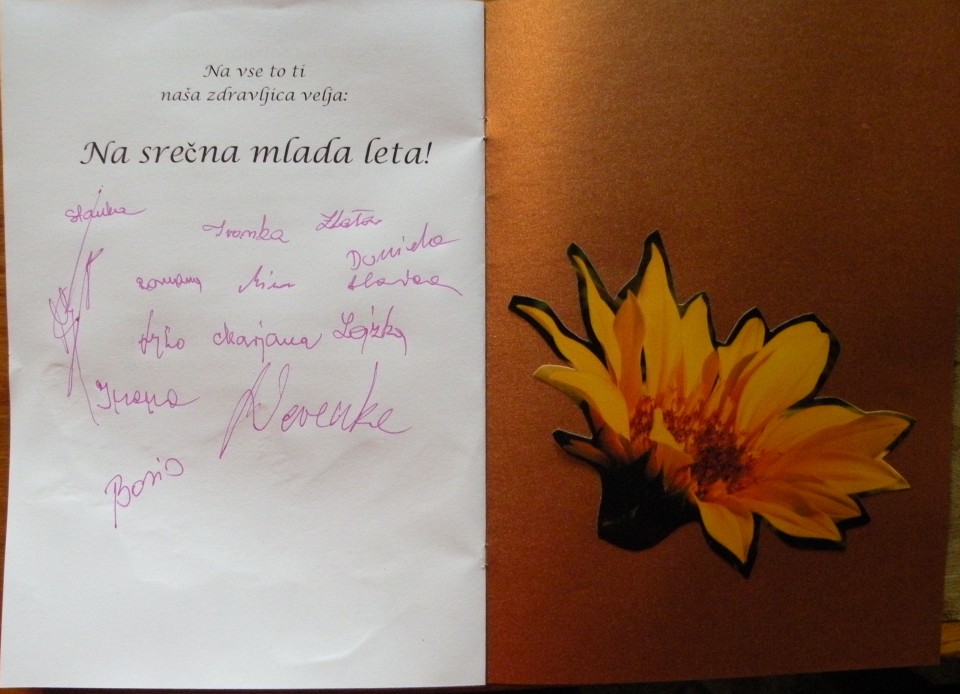 Na vse to ti
naša zdravljica velja:
Na srečna mlada leta!
Slavka
Ivanka Zlatka
Daniela
Romana Mira Slavica
Marjana Lojzka
Ivana Nevenka
Boris